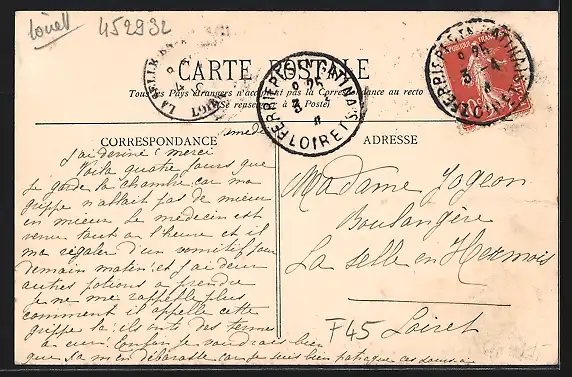 Loiret 452932
CARTE POSTALE
Tous les Pays étrangers n'acceptent pas la Correspondance au recto
(Se renseigner à la Poste)
FERRIERES-EN-GATINAIS
8 25
3
11
LOIRET
LA SELLE-EN-
LOIRET
CORRESPONDANCE
J'ai deviné! merci
Voila quatre jours que
je garde la chambre car ma
grippe n'allait pas de mieux
en mieux. Le médecin est
venu tout à l'heure et il
va régaler d'un vomitif pour
demain matin! et j'ai deux
autres potions à prendre
Je ne me rappelle plus
comment il appelle cette
grippe là: ils ont des termes
à eux! Enfin je voudrais bien
que ça m'en débarasse car je suis bien fatiguée ces jours-ci
ADRESSE
Madame Jogeon
Boulangère
La Selle en Hermois
Loiret
F45